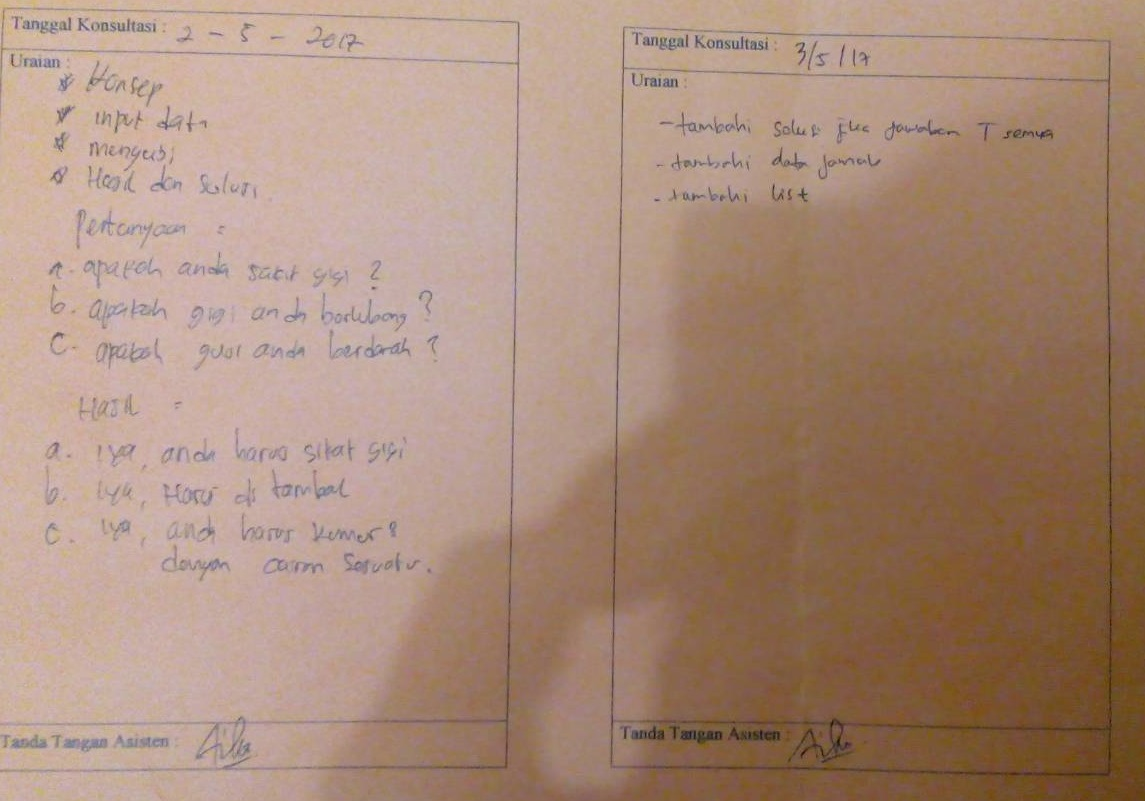 Tanggal Konsultasi : 2 - 5 - 2017
Uraian :
* Konsep
* input data
* menguji
* Hasil dan Solusi.
Pertanyaan :
a. apakah anda sakit gigi ?
b. apakah gigi anda berlubang ?
c. apakah gusi anda berdarah ?
Hasil =
a. iya, anda harus sikat gigi
b. iya, Harus di tambal
c. iya, anda harus kumur²
dengan cairan
Tanda Tangan Asisten :
Tanggal Konsultasi : 3/5/17
Uraian :
- tambahi solusi jika jawaban T semua
- tambahi data
- tambahi list
Tanda Tangan Asisten :